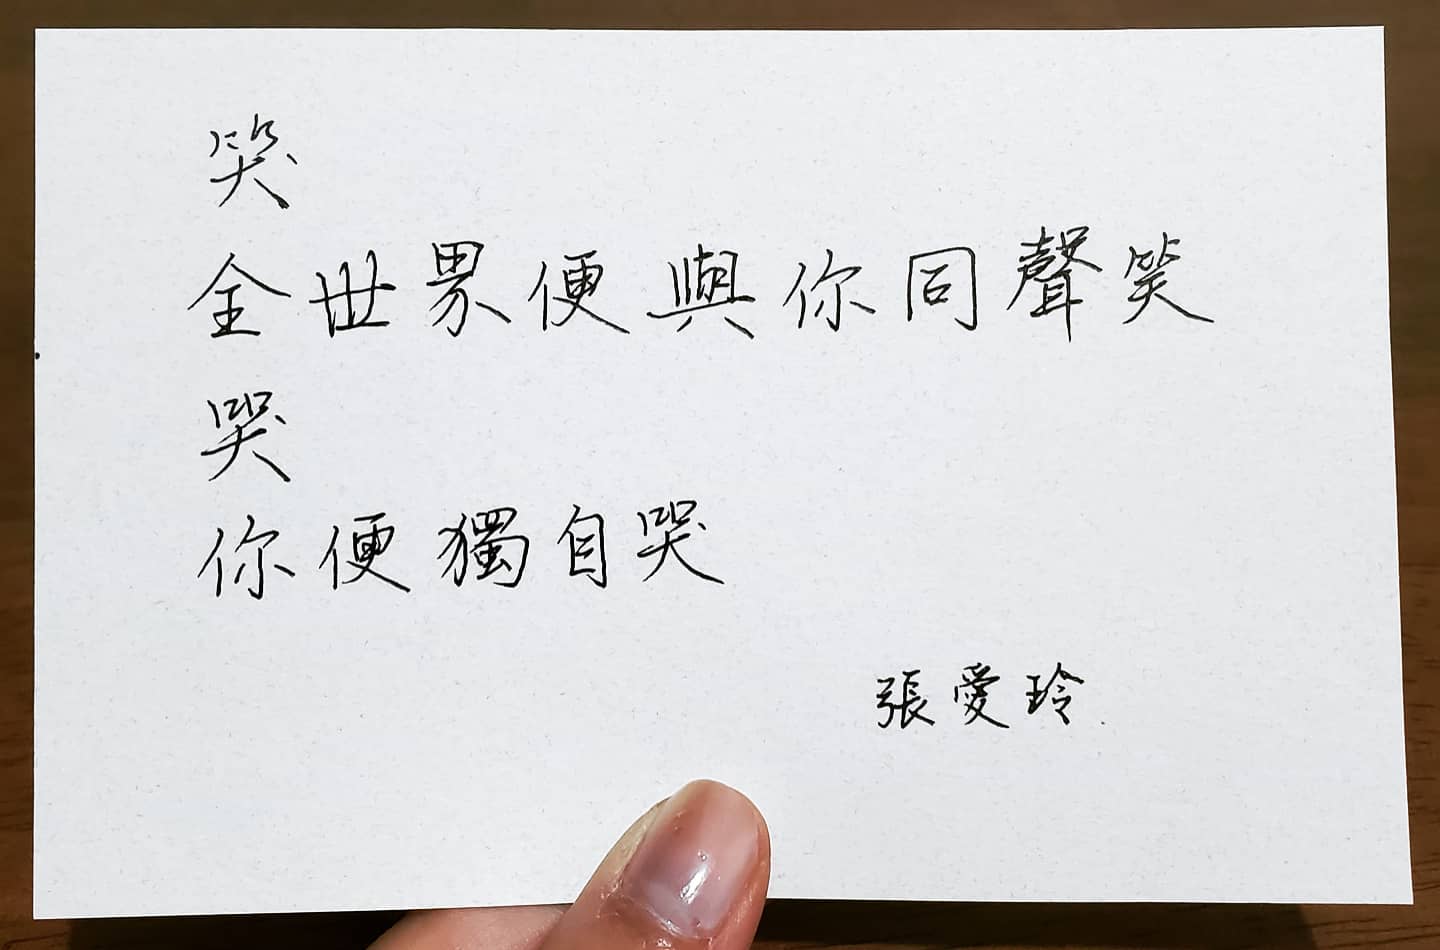 笑
全世界便與你同聲笑
哭
你便獨自哭
張愛玲